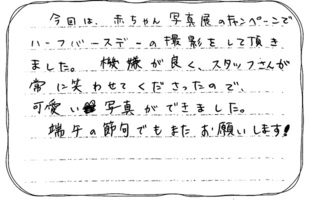 今回は、赤ちゃん写真展のキャンペーンで
ハーフバースデーの撮影をして頂き
ました。 機嫌が良く、スタッフさんが
常に笑わせてくださったので、
可愛い写真ができました。
端午の節句でもまたお願いします!